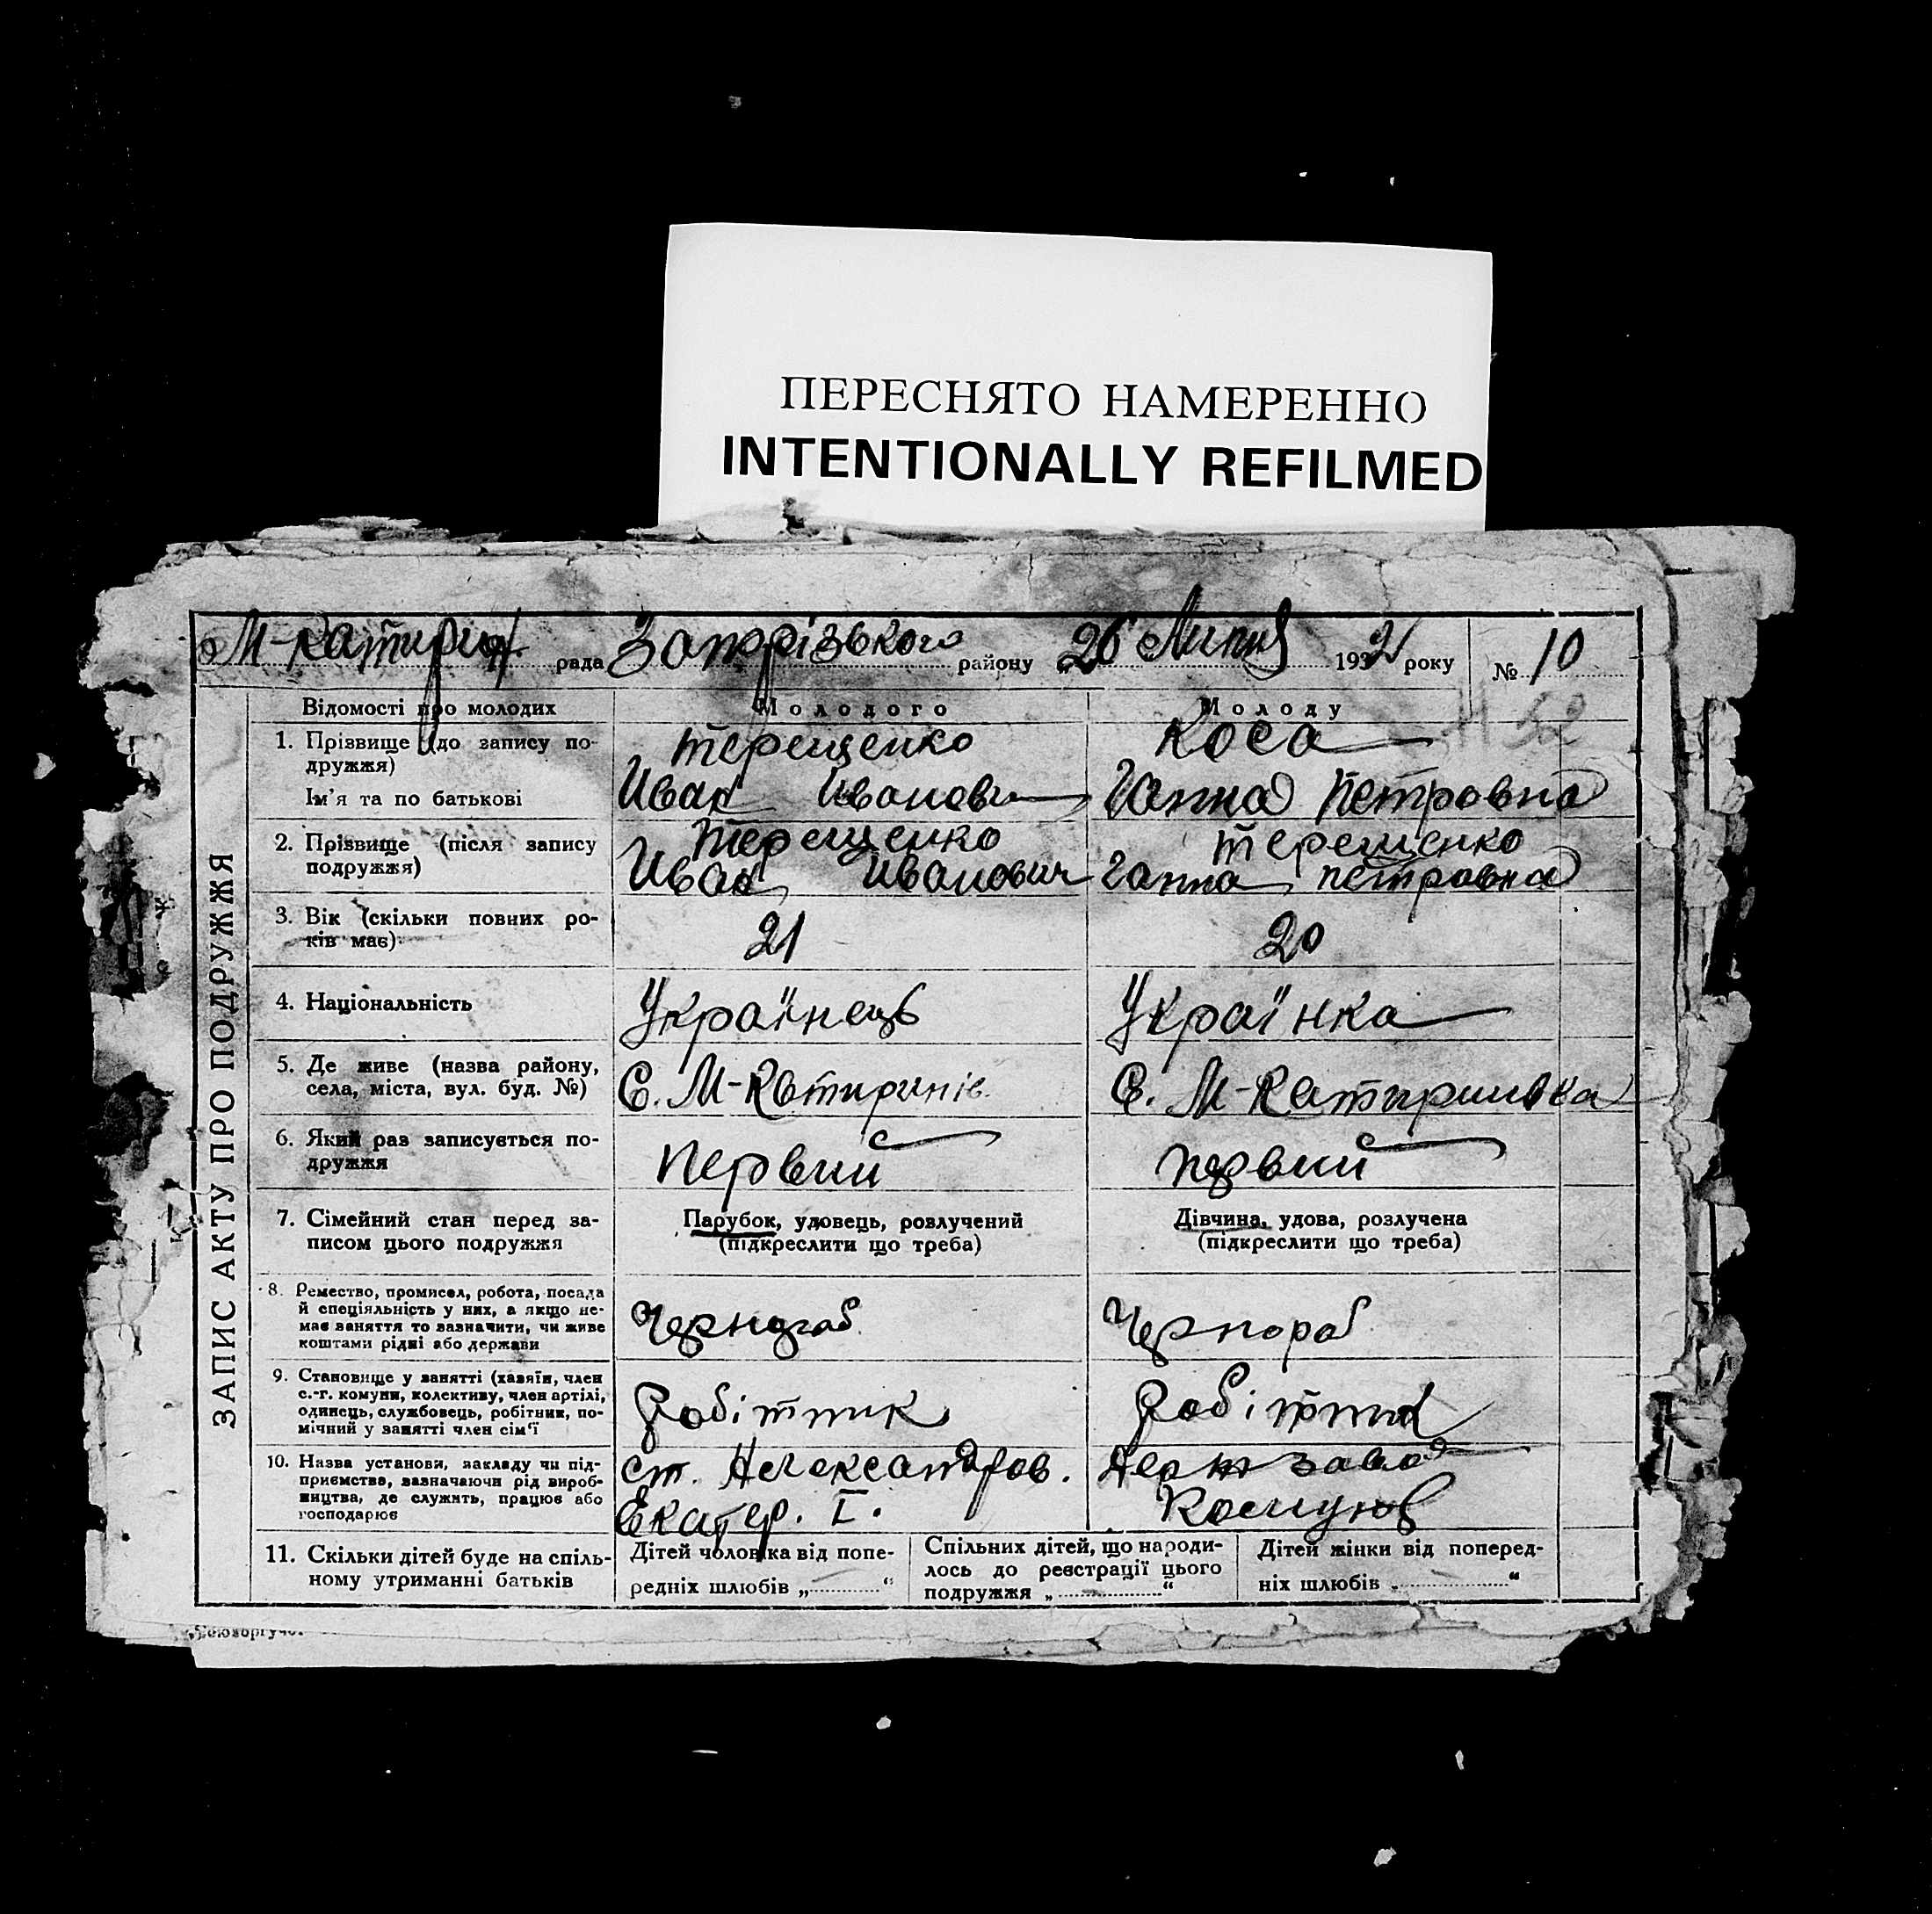 ПЕРЕСНЯТО НАМЕРЕННО
INTENTIONALLY REFILMED
рада Запорізького району 26 Липня 1932 року № 10
ЗАПИС АКТУ ПРО ПОДРУЖЖЯ
Відомості про молодих
Молодого
Молоду
1. Прізвище (до запису по-
дружжя)
Ім'я та по батькові
Терещенко
Иван Иванович
Коса
Ганна Петровна
2. Прізвище (після запису
подружжя)
Терещенко
Иван Иванович
Терещенко
Ганна Петровна
3. Вік (скільки повних ро-
ків має)
21
20
4. Національність
Українець
Українка
5. Де живе (назва району,
села, міста, вул. буд. №)
С. М-Катиринів.
С. М-Катиринівка
6. Який раз записується по-
дружжя
Первий
первий
7. Сімейний стан перед за-
писом цього подружжя
Парубок, удовець, розлучений
(підкреслити що треба)
Дівчина, удова, розлучена
(підкреслити що треба)
8. Ремество, промисел, робота, посада
й спеціяльність у них, а якщо не-
має заняття то зазначити, чи живе
коштами рідні або держави
Чернораб.
Чернораб
9. Становище у занятті (хазяїн, член
с.-г. комуни, колективу, член артілі,
одинець, службовець, робітник, по-
мічний у занятті член сім'ї
Робітник
10. Назва установи, закладу чи під-
приємства, зазначаючи рід вироб-
ництва, де служить, працює або
господарює
ст. Александров.
Екатер. I.
завод
Комунар
11. Скільки дітей буде на спіль-
ному утриманні батьків
Дітей чоловіка від попе-
редніх шлюбів „ “
Спільних дітей, що народи-
лось до реєстрації цього
подружжя „ “
Дітей жінки від поперед-
ніх шлюбів „ “